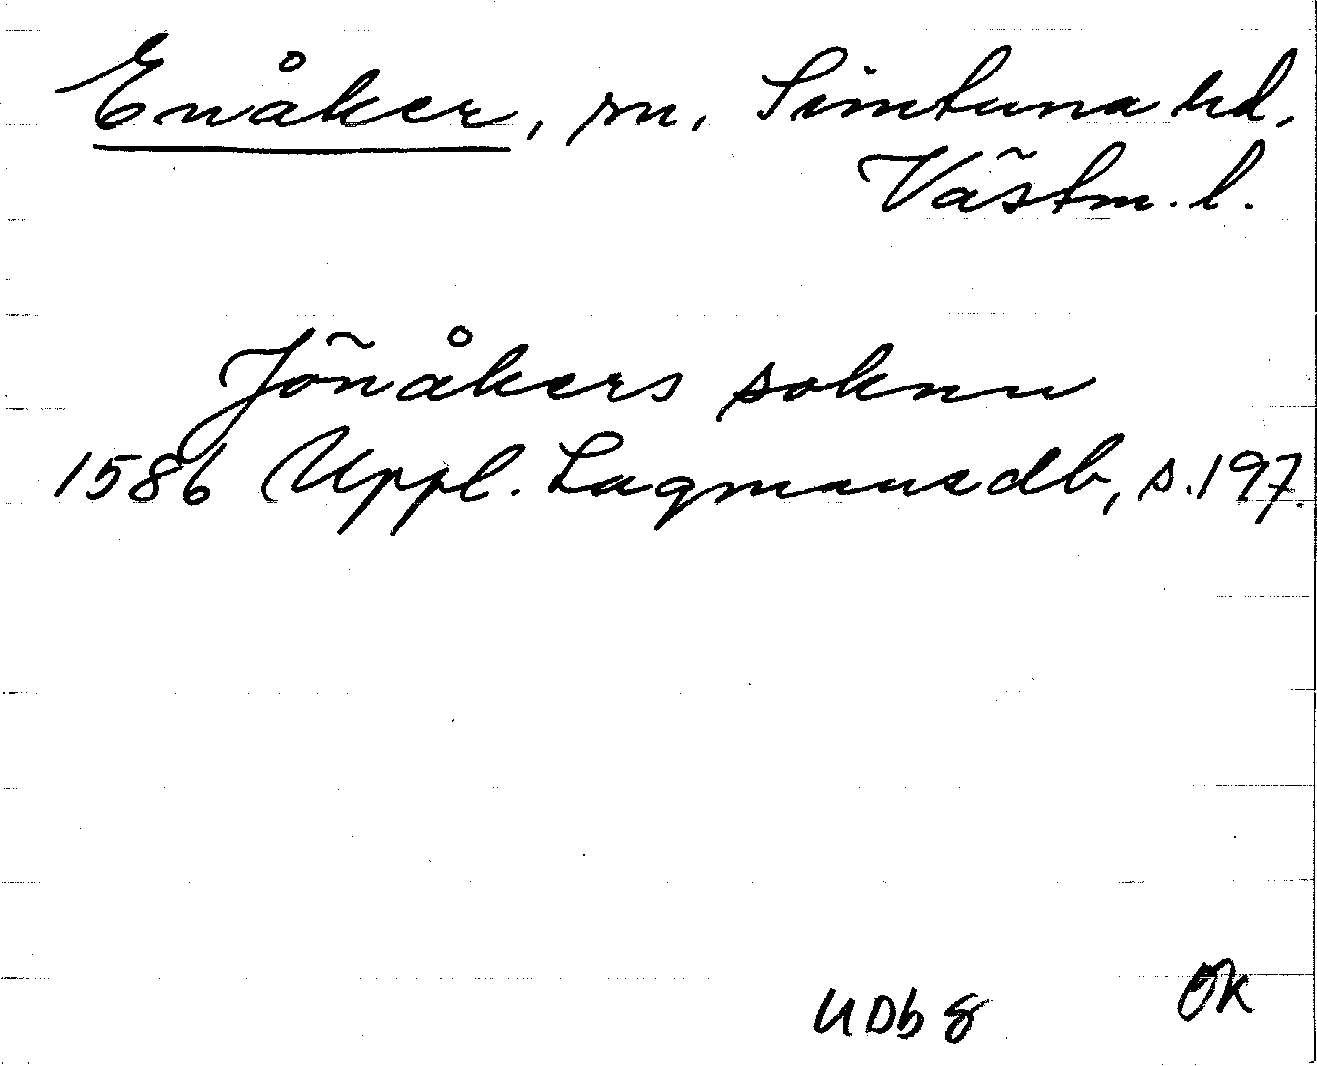 Enåker, sn, Simtuna hd,
Västm. l.
Jönåkers soknn
1586 Uppl. Lagmansdb, s. 197.
UDb 8
ÖK